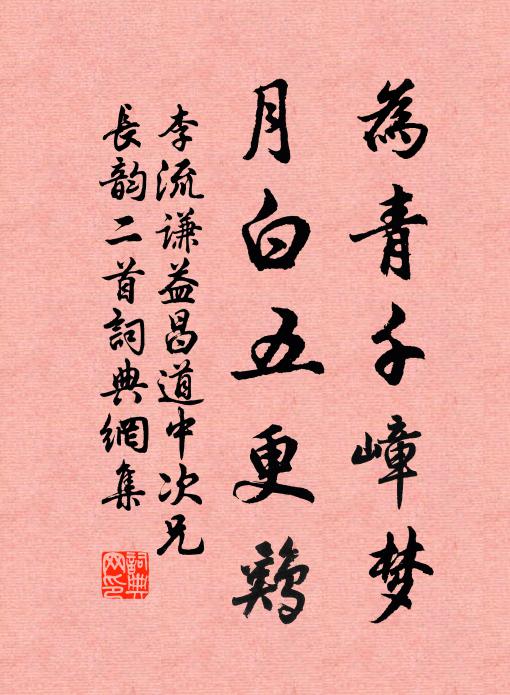 為青千嶂梦
月白五更鷄
李流谦益昌道中次兄
長韵二首詞典網集
詞典
网印